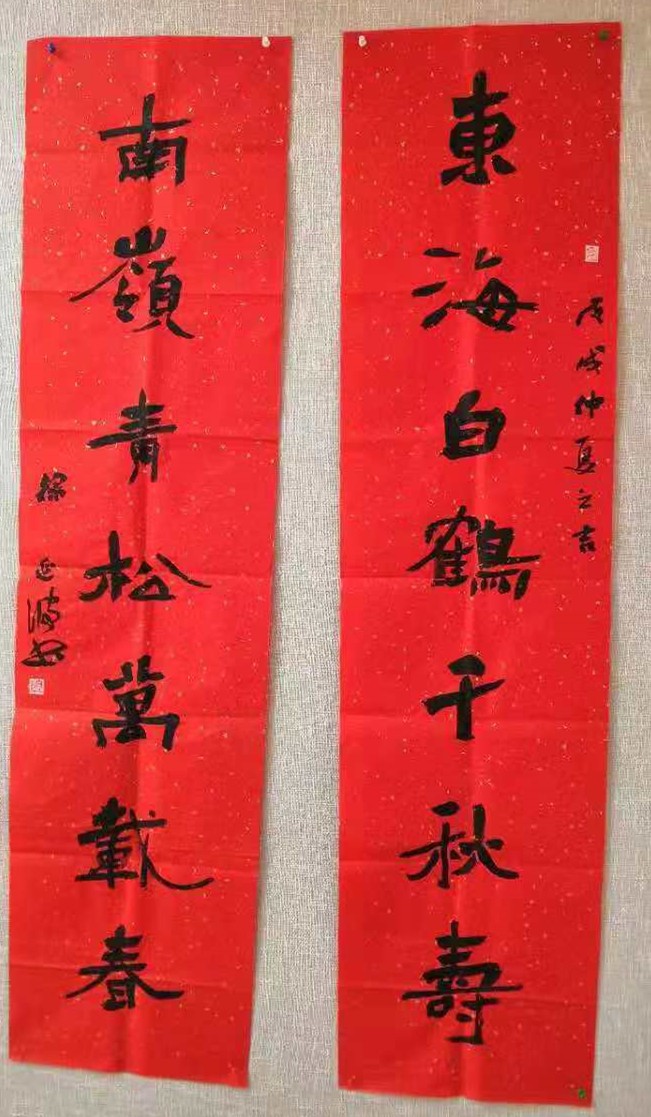 東海白鶴千秋壽
戊戌仲夏之吉
南嶺青松萬載春
波书